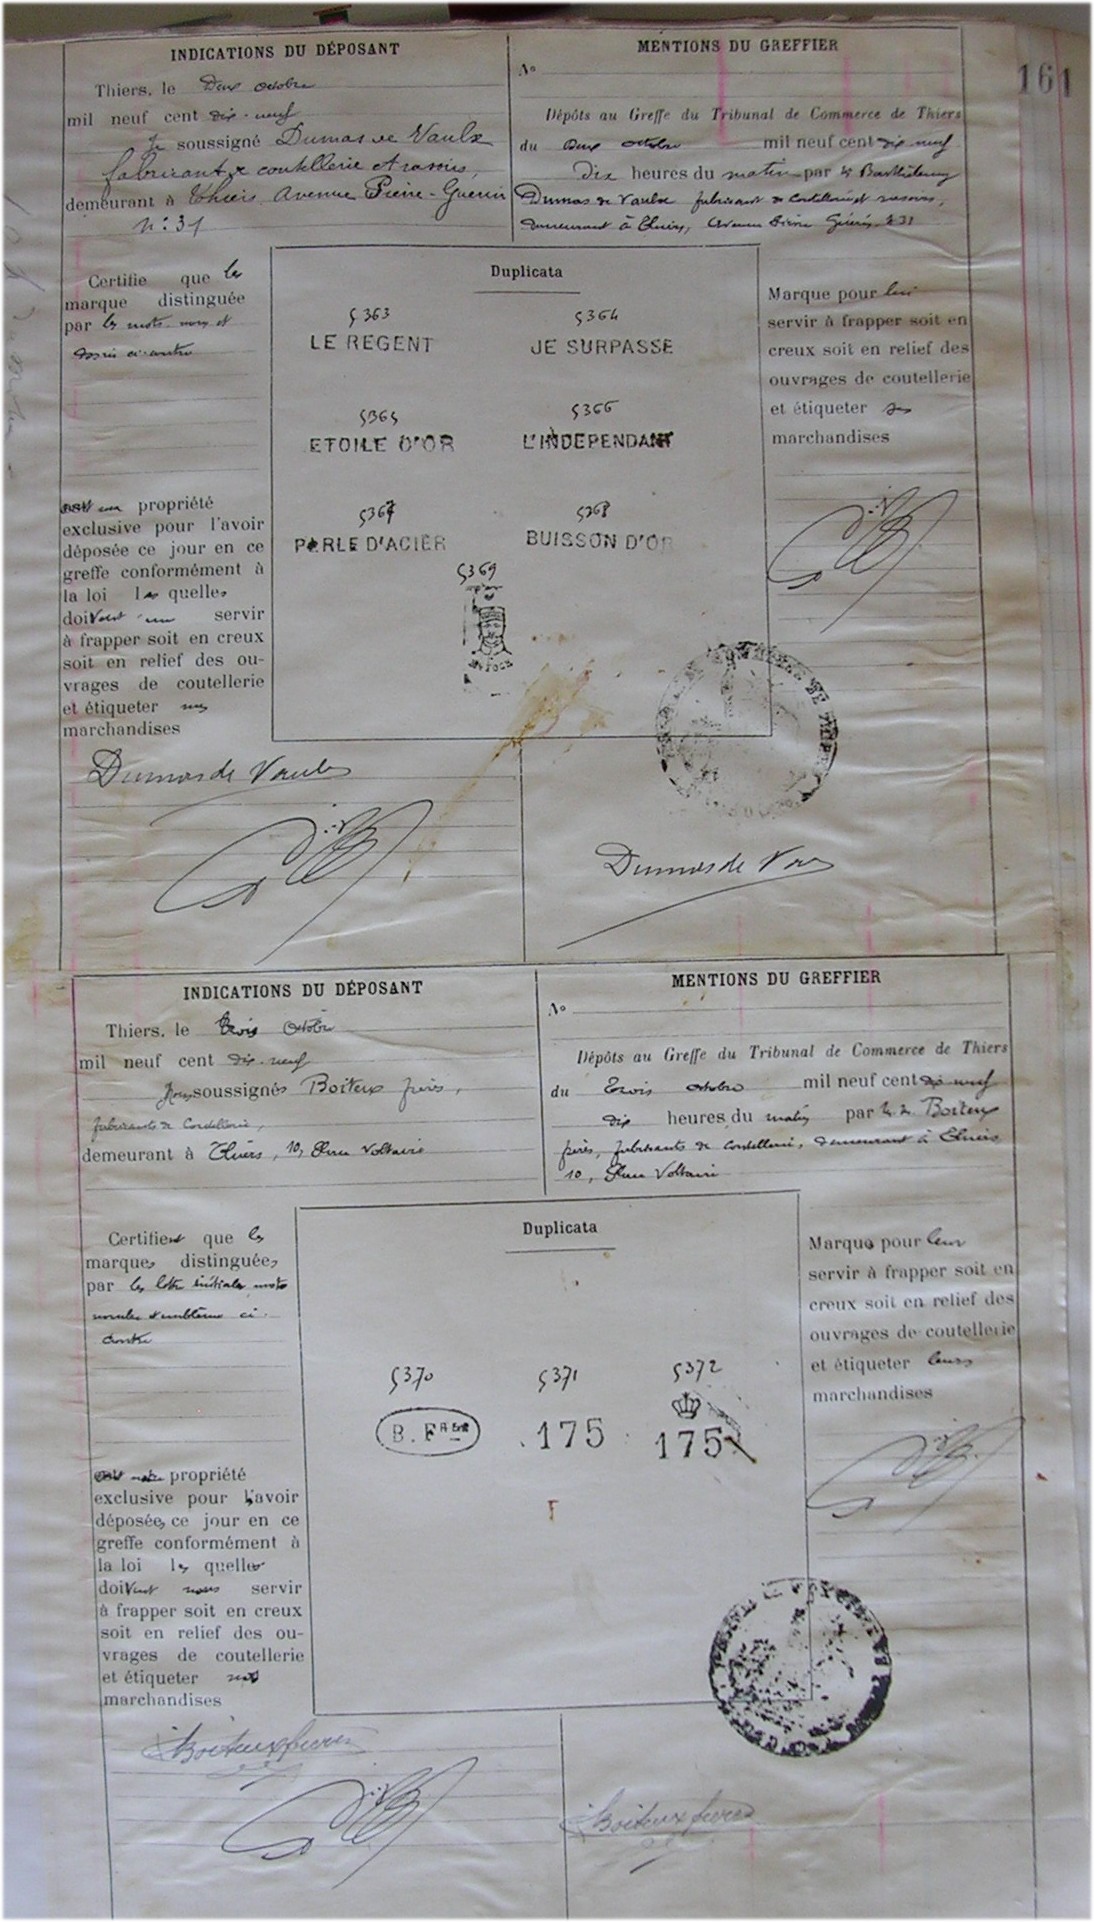 161
INDICATIONS DU DÉPOSANT
Thiers, le Deux octobre
mil neuf cent dix-neuf
Je soussigné Dumas de Vaulx
fabricant de coutellerie et rasoirs,
demeurant à Thiers, Avenue Pierre-Guérin
N: 31
MENTIONS DU GREFFIER
No
Dépôts au Greffe du Tribunal de Commerce de Thiers
du deux octobre mil neuf cent dix neuf
Dix heures du matin par Mr Barthélemy
Dumas de Vaulx fabricant de coutellerie et rasoirs,
demeurant à Thiers, Avenue Pierre Guérin, 31
Certifie que les
marque distinguée
par les mots, noms et
ci-contre
propriété
exclusive pour l'avoir
déposée ce jour en ce
greffe conformément à
la loi les quelles
doivent servir
à frapper soit en creux
soit en relief des ou-
vrages de coutellerie
et étiqueter mes
marchandises
Duplicata
5363 5364
LE REGENT JE SURPASSE
5365 5366
ETOILE D'OR L'INDEPENDANT
5367 5368
PERLE D'ACIER BUISSON D'OR
5369
Marque pour lui
servir à frapper soit en
creux soit en relief des
ouvrages de coutellerie
et étiqueter ses
marchandises
Dumas de Vaulx
Dumas de Vaulx
INDICATIONS DU DÉPOSANT
Thiers, le trois Octobre
mil neuf cent dix-neuf
Nous soussignés Boiteux frères,
fabricants de Coutellerie,
demeurant à Thiers, 10, Rue Voltaire
MENTIONS DU GREFFIER
No
Dépôts au Greffe du Tribunal de Commerce de Thiers
du Trois octobre mil neuf cent dix neuf
dix heures du matin par M. M. Boiteux
frères, fabricants de coutellerie, demeurant à Thiers
10, Rue Voltaire
Certifient que les
marques distinguées
par les lettres initiales, mots
emblème ci-
contre
notre propriété
exclusive pour l'avoir
déposée, ce jour en ce
greffe conformément à
la loi les quelles
doivent nous servir
à frapper soit en creux
soit en relief des ou-
vrages de coutellerie
et étiqueter nos
marchandises
Duplicata
5370 5371 5372
B. FRES 175 175
Marque pour leur
servir à frapper soit en
creux soit en relief des
ouvrages de coutellerie
et étiqueter leurs
marchandises
Boiteux frères
Boiteux frères